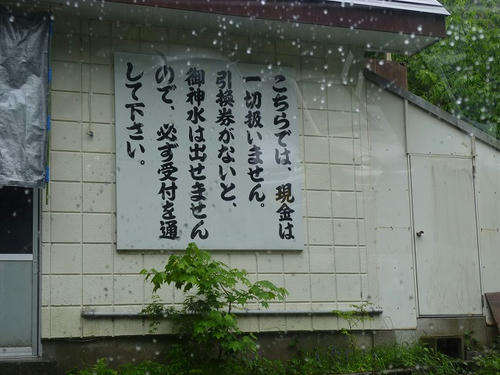 こちらでは、現金は
一切扱いません。
引換券がないと、
御神水は出せません
ので、必ず受付を通
して下さい。